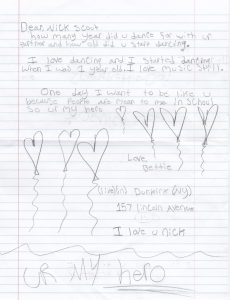 Dear Nick Scott
how many year did u dance for with ur
partner and how old did u start dancing.
I love dancing and I started dancing
when I was 1 year old. I love music still.
One day I want to be like u
because people are mean to me In School
So ur my hero
Love,
Bettie
(live)(in) (NY)
157 Lincoln Avenue
I love u nick
UR MY hero